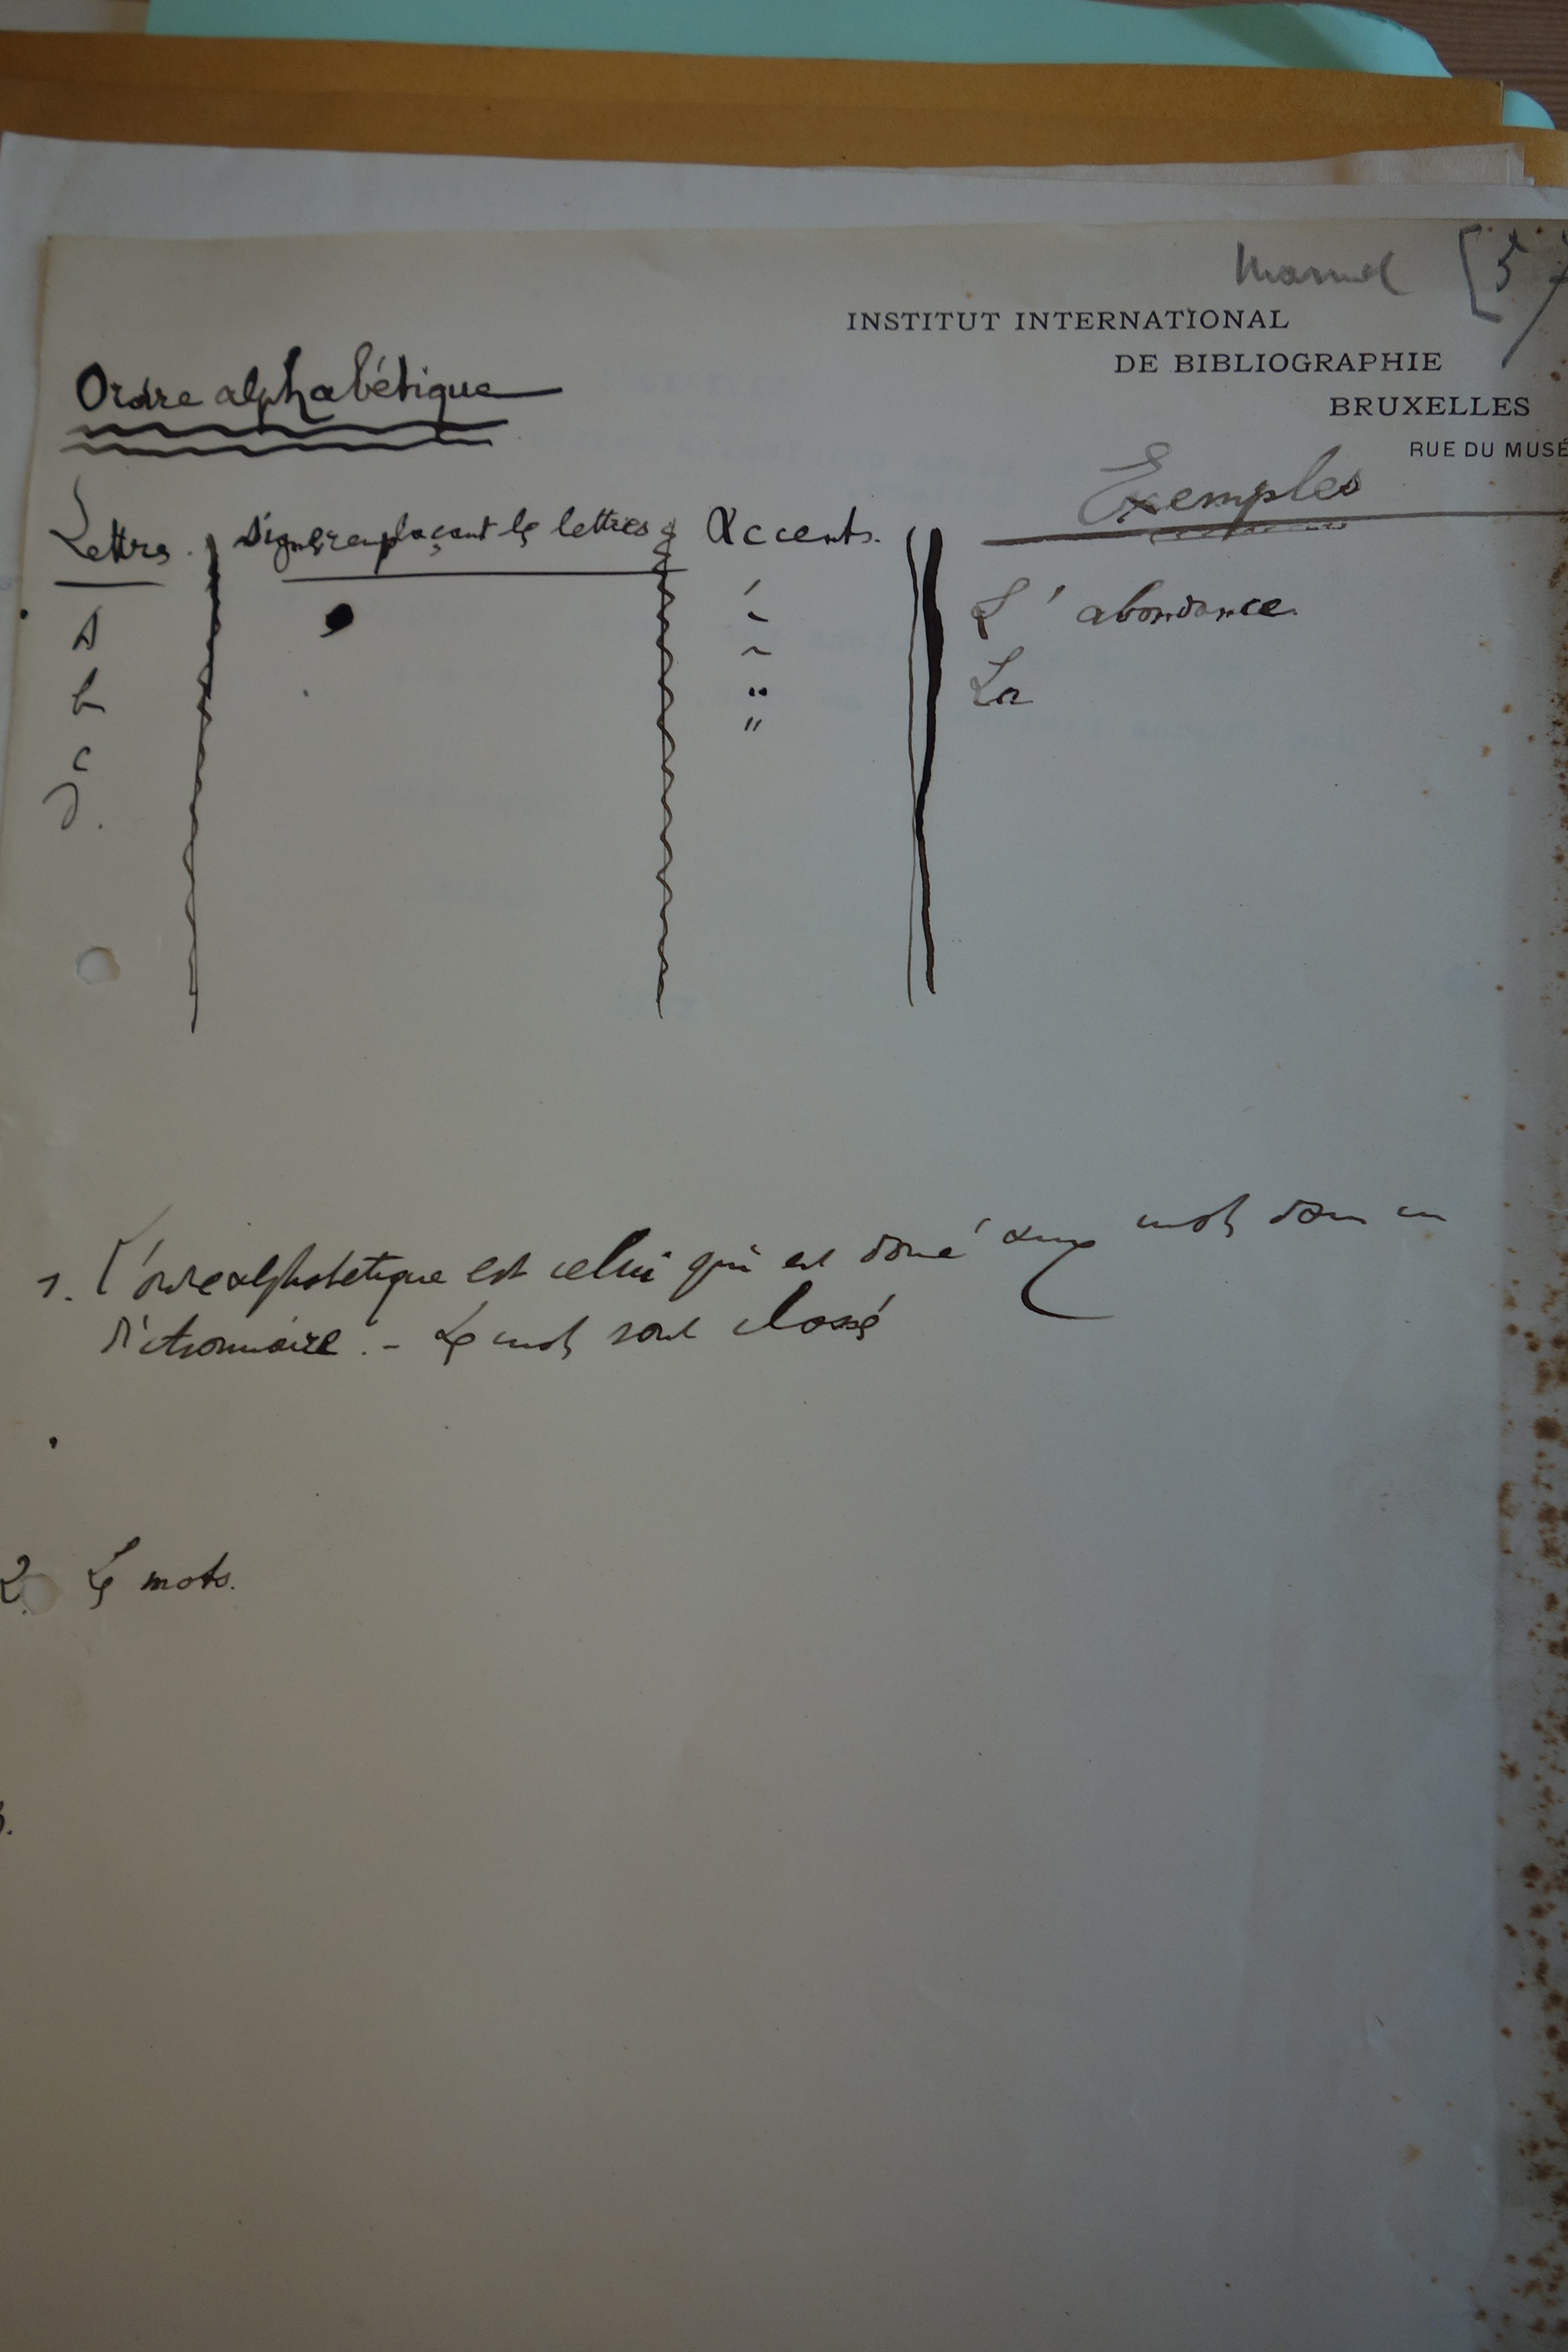 Manuel [57
INSTITUT INTERNATIONAL
DE BIBLIOGRAPHIE
BRUXELLES
RUE DU MUSÉ
Ordre alphabétique
Exemples
Lettres. Signes remplaçant les lettres Accents.
A L'abondance.
b La
c
d.
1. L'ordre alphabétique est celui qui est donné aux mots dans un
dictionnaire. - Les mots sont classés
2. Les mots.
3.